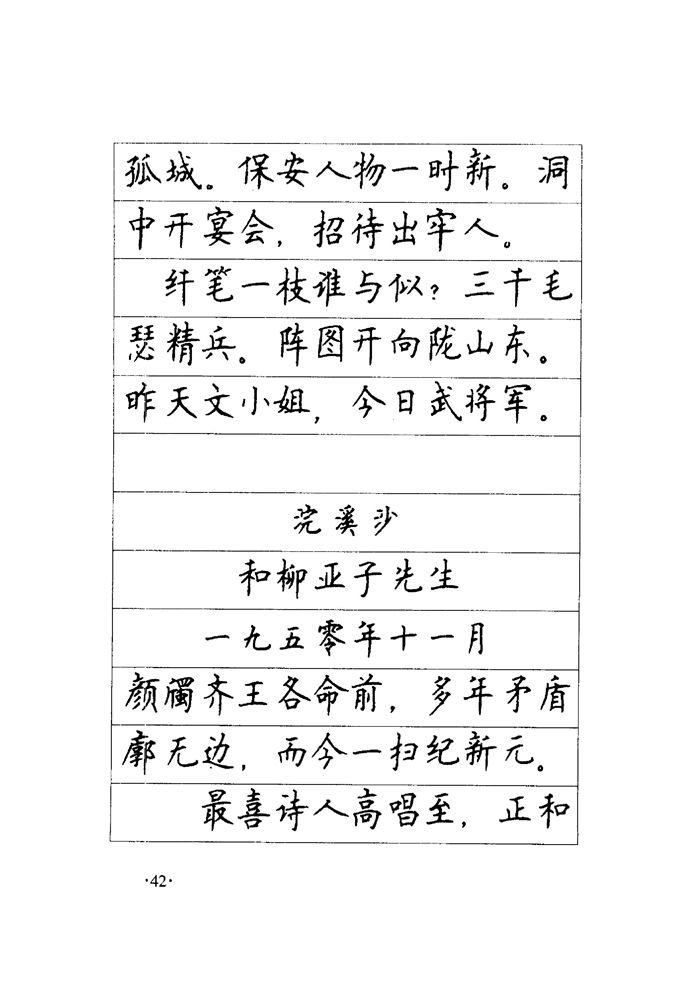 孤城。保安人物一时新。洞
中开宴会，招待出牢人。
纤笔一枝谁与似？三千毛
瑟精兵。阵图开向陇山东。
昨天文小姐，今日武将军。
浣溪沙
和柳亚子先生
一九五零年十一月
颜斶齐王各命前，多年矛盾
廓无边，而今一扫纪新元。
最喜诗人高唱至，正和
·42·